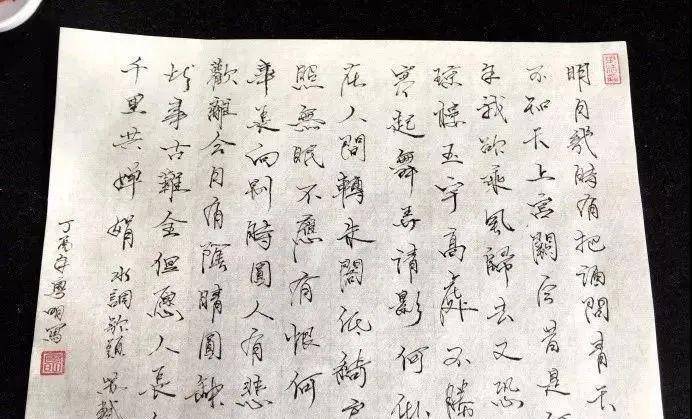 明月幾時有把酒問青天
不知天上宮闕今昔是
年我欲乘風歸去又恐
瓊樓玉宇高處不勝
寒起舞弄清影何似
在人間轉朱閣低綺
照無眠不應有恨何
事長向別時圓人有悲
歡離合月有陰晴圓缺
此事古難全但願人長
千里共嬋娟 水調歌頭 蘇軾
丁酉年恩明寫